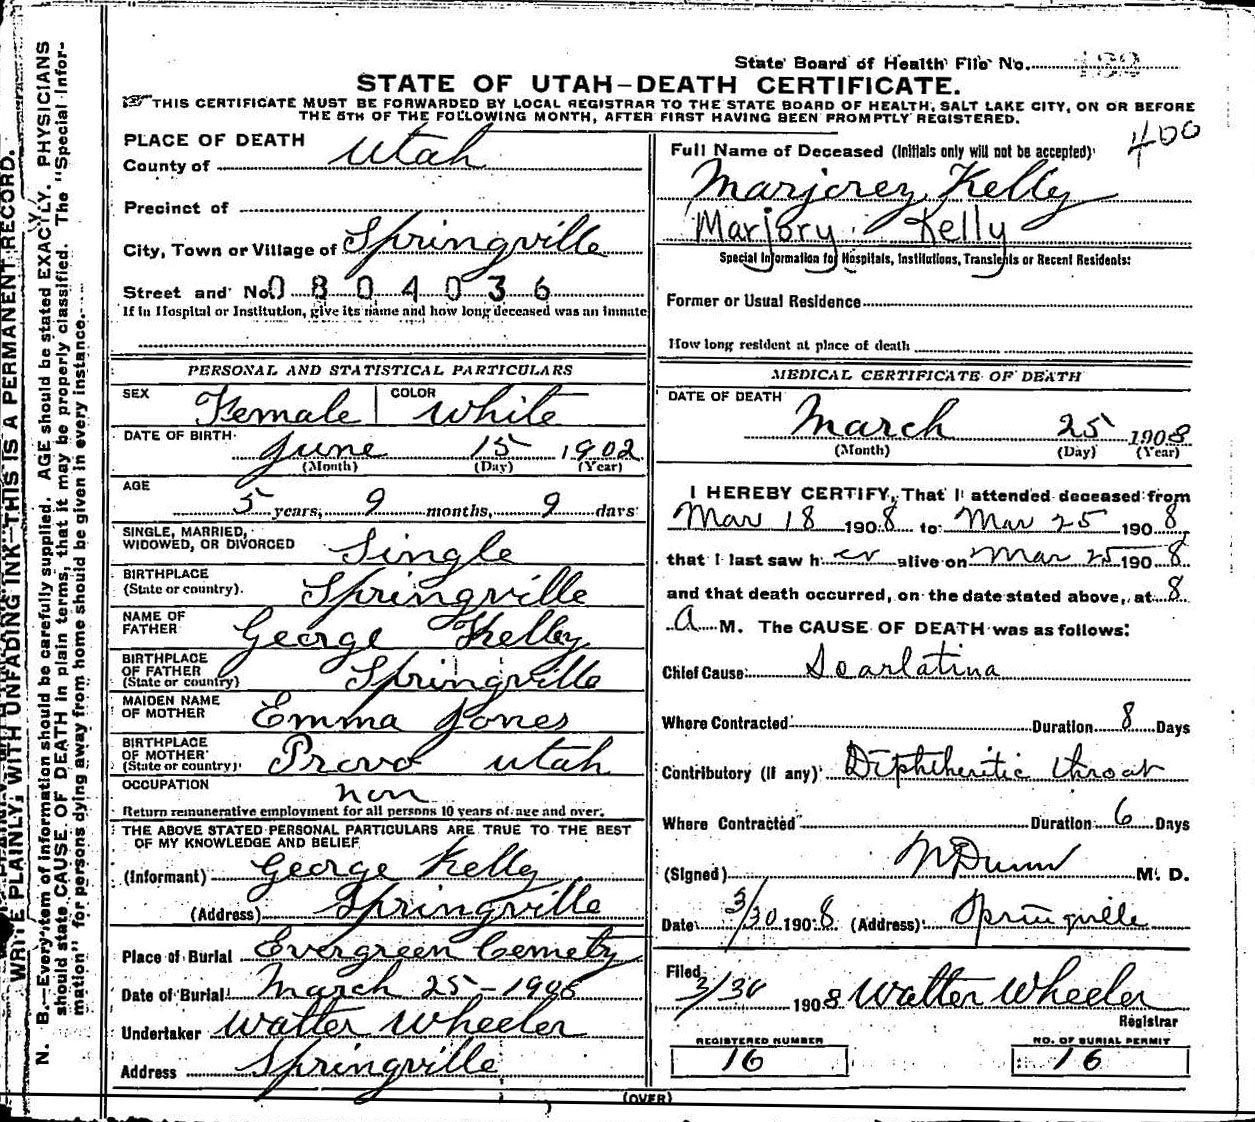 State Board of Health File No.
STATE OF UTAH—DEATH CERTIFICATE.
THIS CERTIFICATE MUST BE FORWARDED BY LOCAL REGISTRAR TO THE STATE BOARD OF HEALTH, SALT LAKE CITY, ON OR BEFORE
THE 5TH OF THE FOLLOWING MONTH, AFTER FIRST HAVING BEEN PROMPTLY REGISTERED.
400
WRITE PLAINLY, WITH UNFADING INK—THIS IS A PERMANENT RECORD.
N. B.—Every item of information should be carefully supplied. AGE should be stated EXACTLY. PHYSICIANS
should state CAUSE OF DEATH in plain terms, that it may be properly classified. The "Special Infor-
mation" for persons dying away from home should be given in every instance.
PLACE OF DEATH
County of Utah
Precinct of
City, Town or Village of Springville
Street and No. 0804036
If in Hospital or Institution, give its name and how long deceased was an inmate
PERSONAL AND STATISTICAL PARTICULARS
SEX Female COLOR White
DATE OF BIRTH June 15 1902
(Month) (Day) (Year)
AGE
5 years, 9 months, 9 days
SINGLE, MARRIED,
WIDOWED, OR DIVORCED Single
BIRTHPLACE
(State or country). Springville
NAME OF
FATHER George Kelly
BIRTHPLACE
OF FATHER
(State or country) Springville
MAIDEN NAME
OF MOTHER Emma Jones
BIRTHPLACE
OF MOTHER
(State or country) Provo Utah
OCCUPATION non
Return remunerative employment for all persons 10 years of age and over.
THE ABOVE STATED PERSONAL PARTICULARS ARE TRUE TO THE BEST
OF MY KNOWLEDGE AND BELIEF
(Informant) George Kelly
(Address) Springville
Place of Burial Evergreen Cemety
Date of Burial March 25-1908
Undertaker Walter Wheeler
Address Springville
Full Name of Deceased (Initials only will not be accepted)
Marjorey Kelly
Marjory Kelly
Special Information for Hospitals, Institutions, Transients or Recent Residents:
Former or Usual Residence
How long resident at place of death
MEDICAL CERTIFICATE OF DEATH
DATE OF DEATH
March 25 1908
(Month) (Day) (Year)
I HEREBY CERTIFY, That I attended deceased from
Mar 18 1908 to Mar 25 1908
that I last saw her alive on Mar 25 1908
and that death occurred, on the date stated above, at 8
A M. The CAUSE OF DEATH was as follows:
Chief Cause: Scarlatina
Where Contracted Duration 8 Days
Contributory (if any) Diphtheritic throat
Where Contracted Duration 6 Days
(Signed) N Dunn M. D.
Date 3/30 1908 (Address) Springville
Filed
3/30 1908 Walter Wheeler
Registrar
REGISTERED NUMBER
16
NO. OF BURIAL PERMIT
16
(OVER)